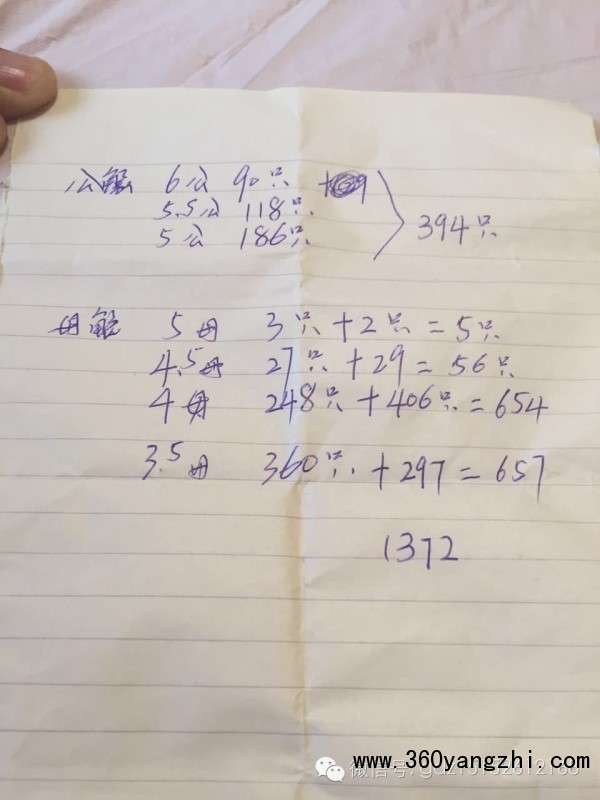 公蟹 6公 90只
5.5公 118只
5公 186只
394只
母蟹 5母 3只+2只=5只
4.5母 27只+29=56只
4母 248只+406只=654
3.5母 360只+297=657
1372
www.360yangzhi.com
微信号: